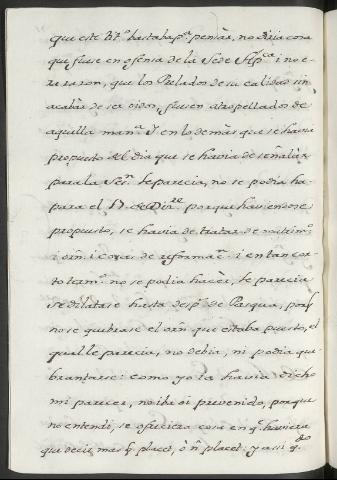 que este Bt.º bastaba p.ª pensar, no diria cosa
que fuese en ofensa de la Sede Ap.ca i no e-
ra razon, que los Prelados de su calidad sin
acabar de ser oidos, fuesen atropellados de
aquella man.ª Y en lo demas que se havia
propuesto del dia que se havia de señalar
para la Ses.n le parecia, no se podia ha-
para el 17. de Div.re porque haviendose
propuesto, se havia de tratar de matrim.º
i orn. i cosas de reformac.n i en tan cor-
to term.º no se podia hacer, le parecia
se dilatase hasta desp.s de Pasqua, por q
no se quebrase el orn. que estaba puesto, el
qual le parecia, no debia, ni podia que-
brantarse: como yo la havia dicho
mi parecer, no iba oi prevenido, porque
no entendi, se ofreciera cosa en q. hubiera
que decir mas q. placet, ò n. placet: y assi q.do